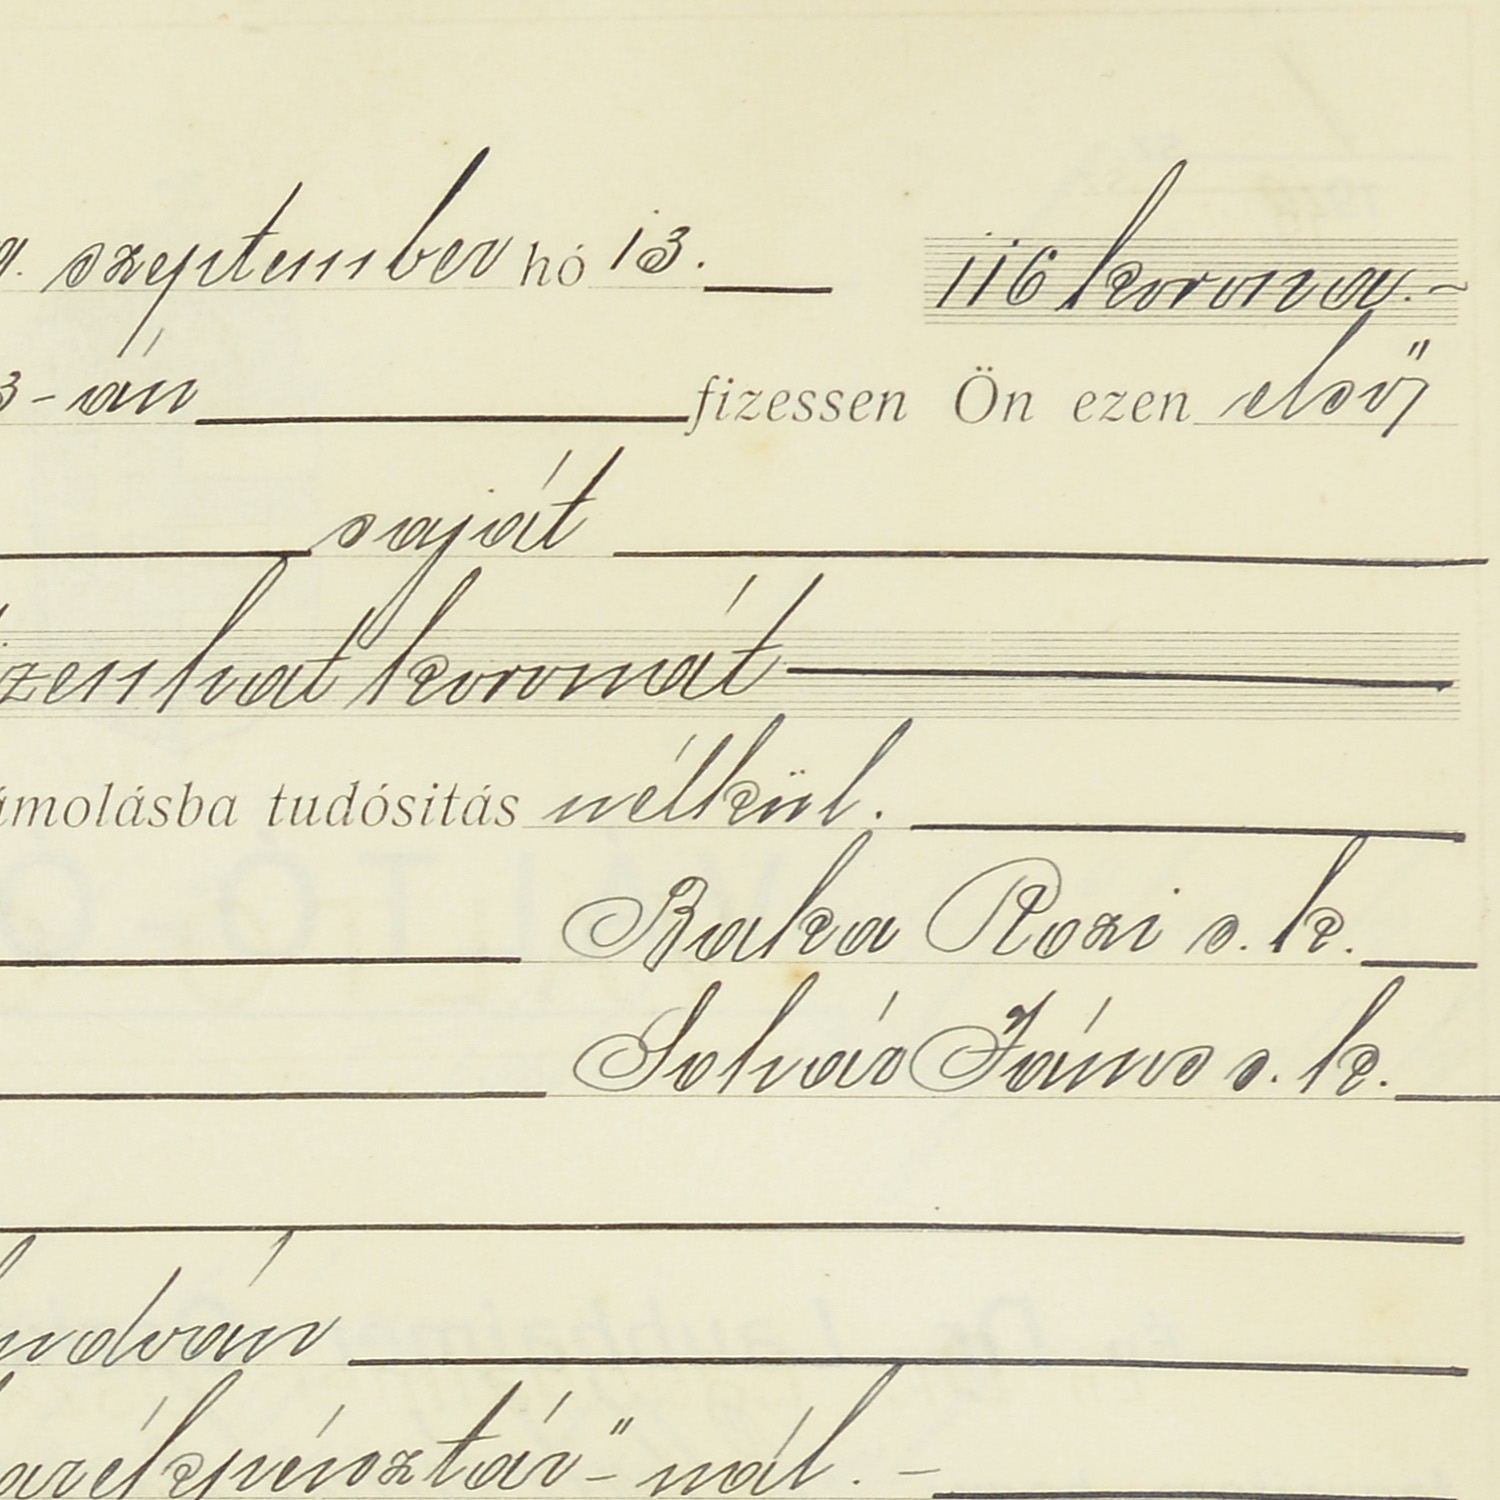 szeptember hó 13. 116 korona.-
3-án fizessen Ön ezen első
saját
tizenhat koronát
ámolásba tudósitás nélkül.
Baka Rozi s. k.
Sohár János s. k.
ndván
arékpénztár"- nál. -